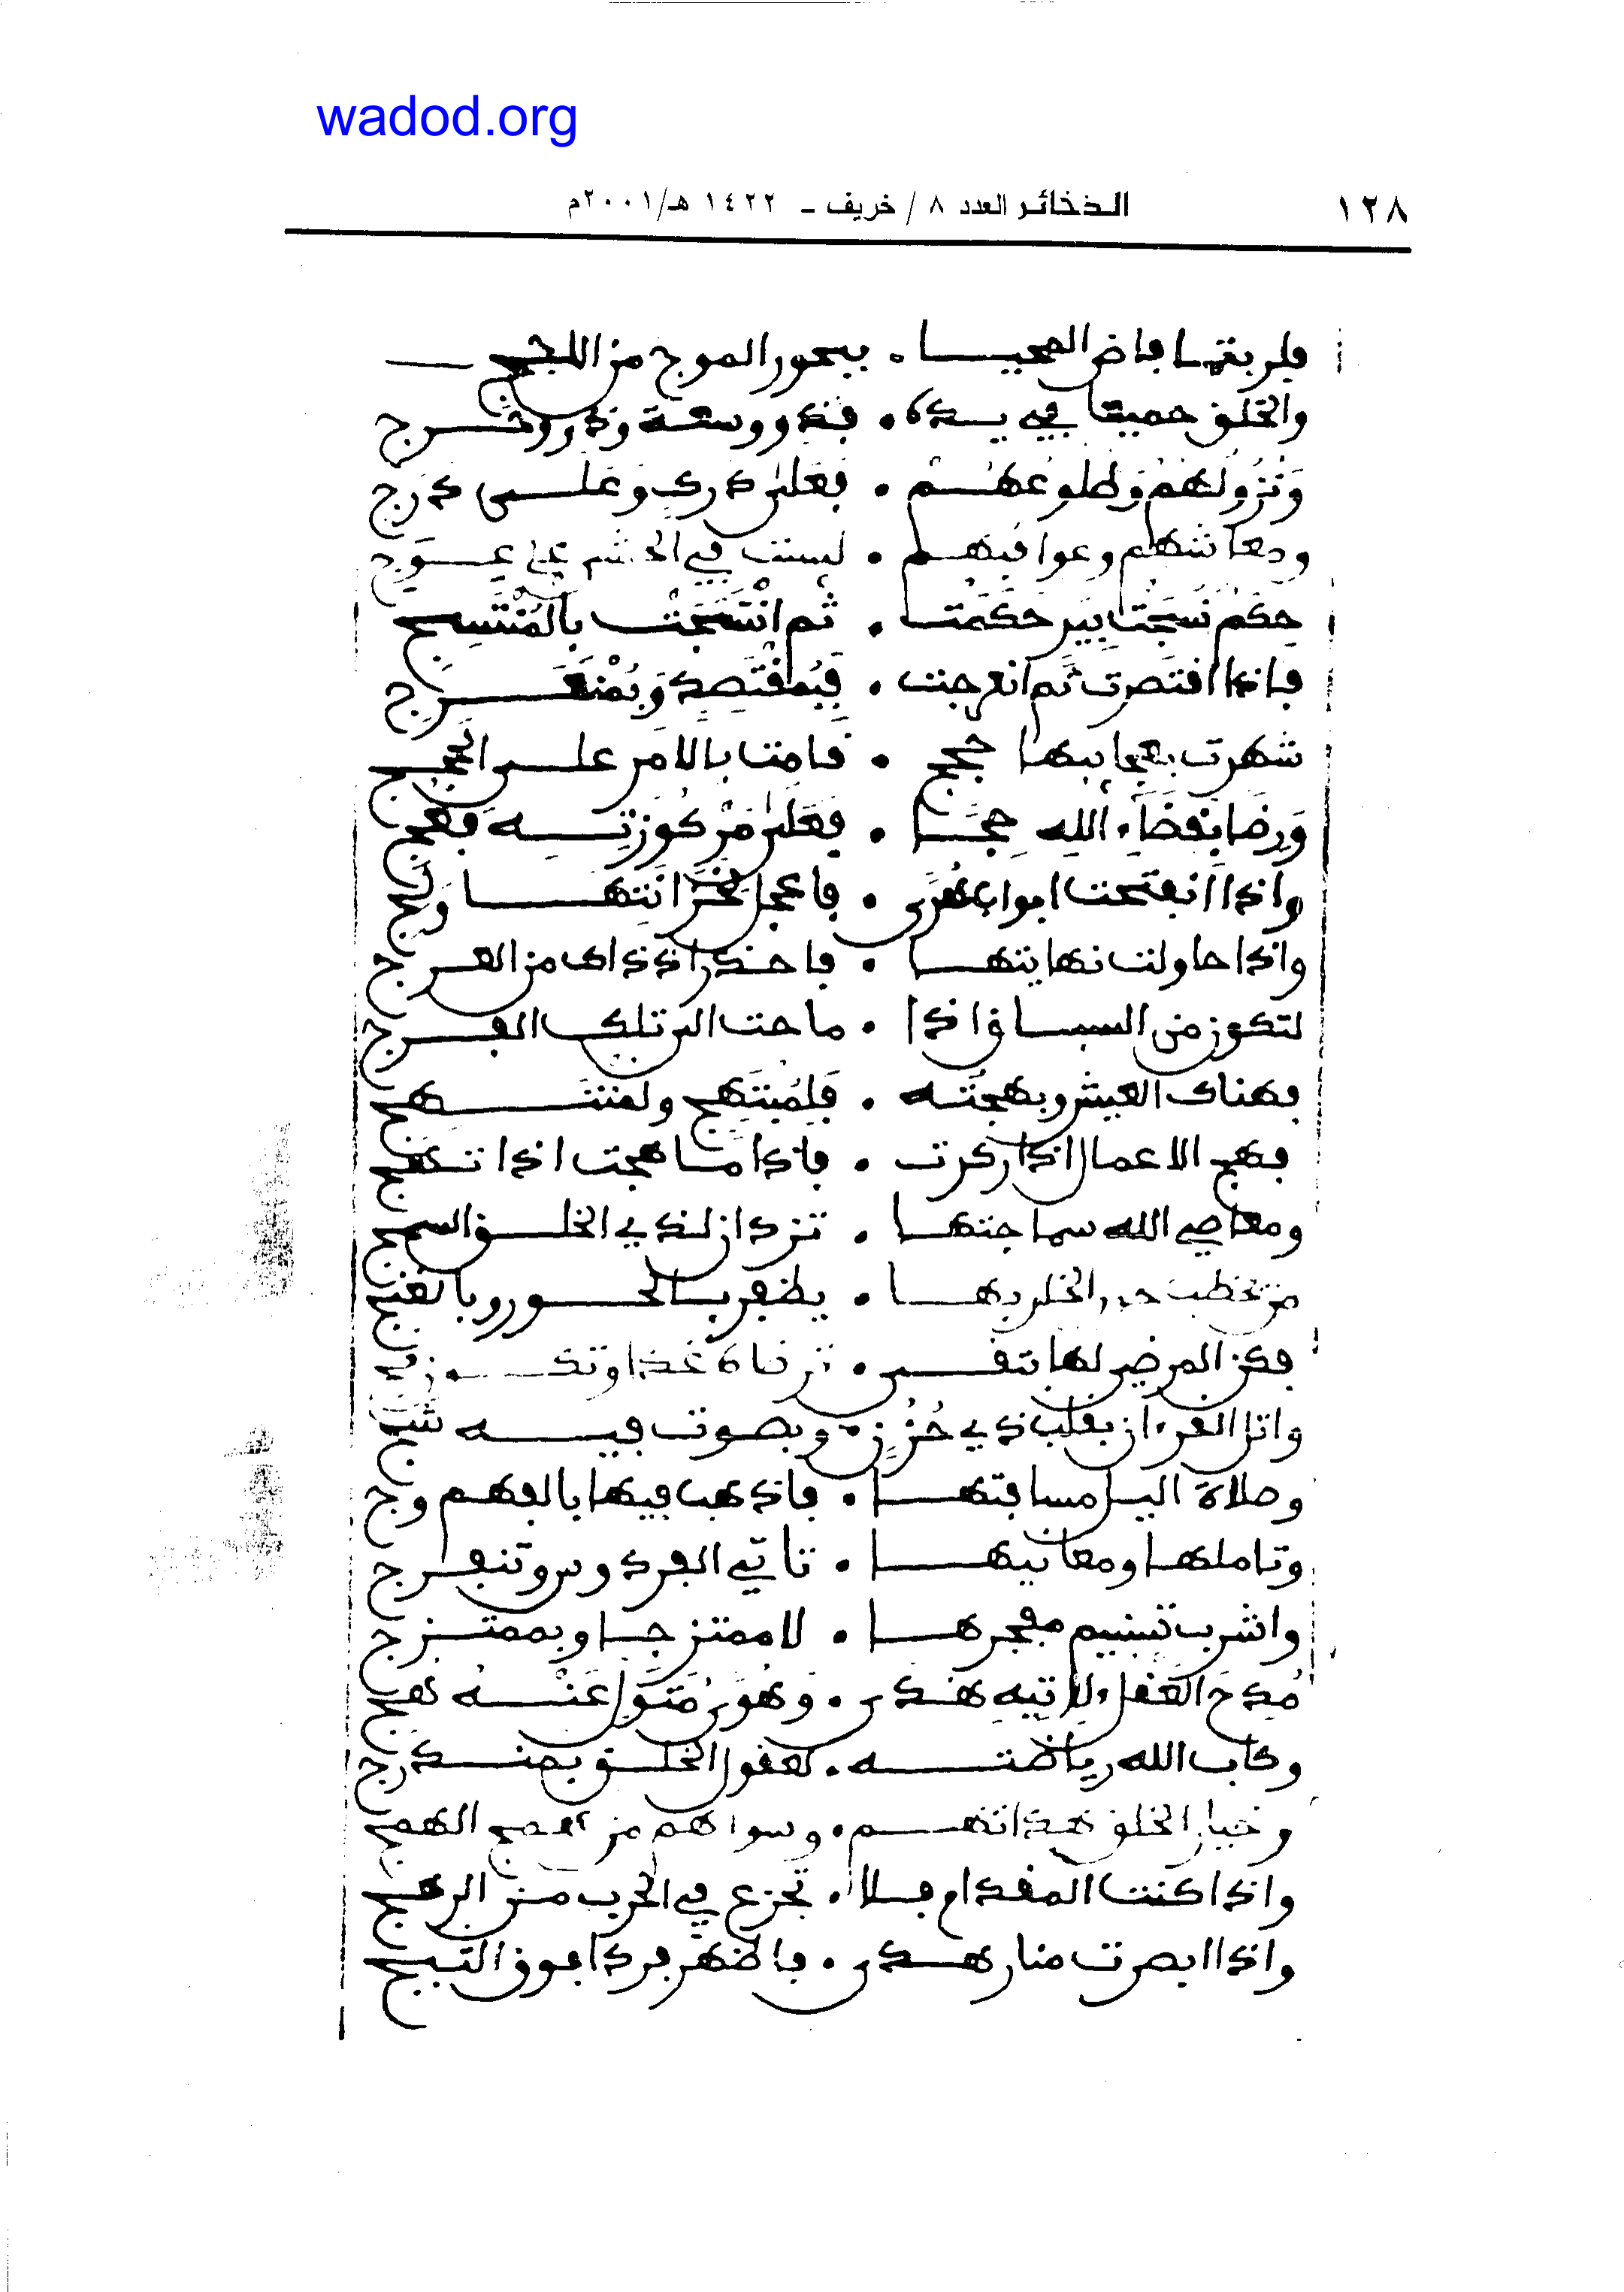 wadod.org
١٢٨ الذخائر العدد ٨ / خريف ـ ١٤٢٢ هـ/٢٠٠١م
فلربتما فاض المحيا . ببحور الموج من اللجج
والخلق جميعا في يده . فذوو سعة وذوو حرج
وَنُزُولُهُمُ وَطُلُوعُهُم . فَعَلَى دَرَكٍ وَعَلَى دَرَج
ومعاشهم وعواقبهم . ليست في المشي على عِوَج
حِكَمٌ نُسِجَت بِيَدٍ حَكَمَت . ثم انْتَسَجَتْ بالمُنْتَسِج
فإذا اقتصدت ثم انعرجت . فَبِمُقْتَصِدٍ وَبِمُنْعَرِج
شهدت بعجائبها حجج . قامت بالامر على الحجج
وَرِضًا بِقَضَاءِ اللهِ حِجًا . فَعَلَى مَرْكُوزَتِهِ فَعُج
واذا انفتحت ابواب هدى . فاعجل لخزائنها وَلِج
واذا حاولت نهايتها . فاحذر اذ ذاك من العرج
لتكون من السباق اذا . ما جئت الى تلك الفرج
فهناك العيش وبهجته . فَلِمُبْتَهِج ولمنتهج
فهج الاعمال اذا ركدت . فاذا ما هجت اذا تهج
ومعاصي الله سماجتها . تزدان لذي الخلق السمج
من يخطب حور الخلد بها . يظفر بالحور وبالغنج
فكن المرضي لها بتقى . ترضاه غدا وتكون نج
واتل القرءان بقلب ذي حُزُنٍ . وبصوت فيه شج
وصلاة اليل مسافتها . فاذهب فيها بالفهم وج
وتاملها ومعانيها . تاتي الفردوس وتنفرج
واشرب تسنيم مفجرها . لا ممتزجا وبممتزج
مُدِحَ العَقل الآتيه هدى . وهَوًى مُتَوَلٍّ عَنْهُ هج
وكتاب الله رياضته . لعقول الخلق بمندرج
وخيار الخلق هداتهم . وسواهم من همج الهمج
واذا كنت المقدام فلا . تجزع في الحرب من الرهج
واذا ابصرت منار هدى . فاظهر فردا فوق الثبج